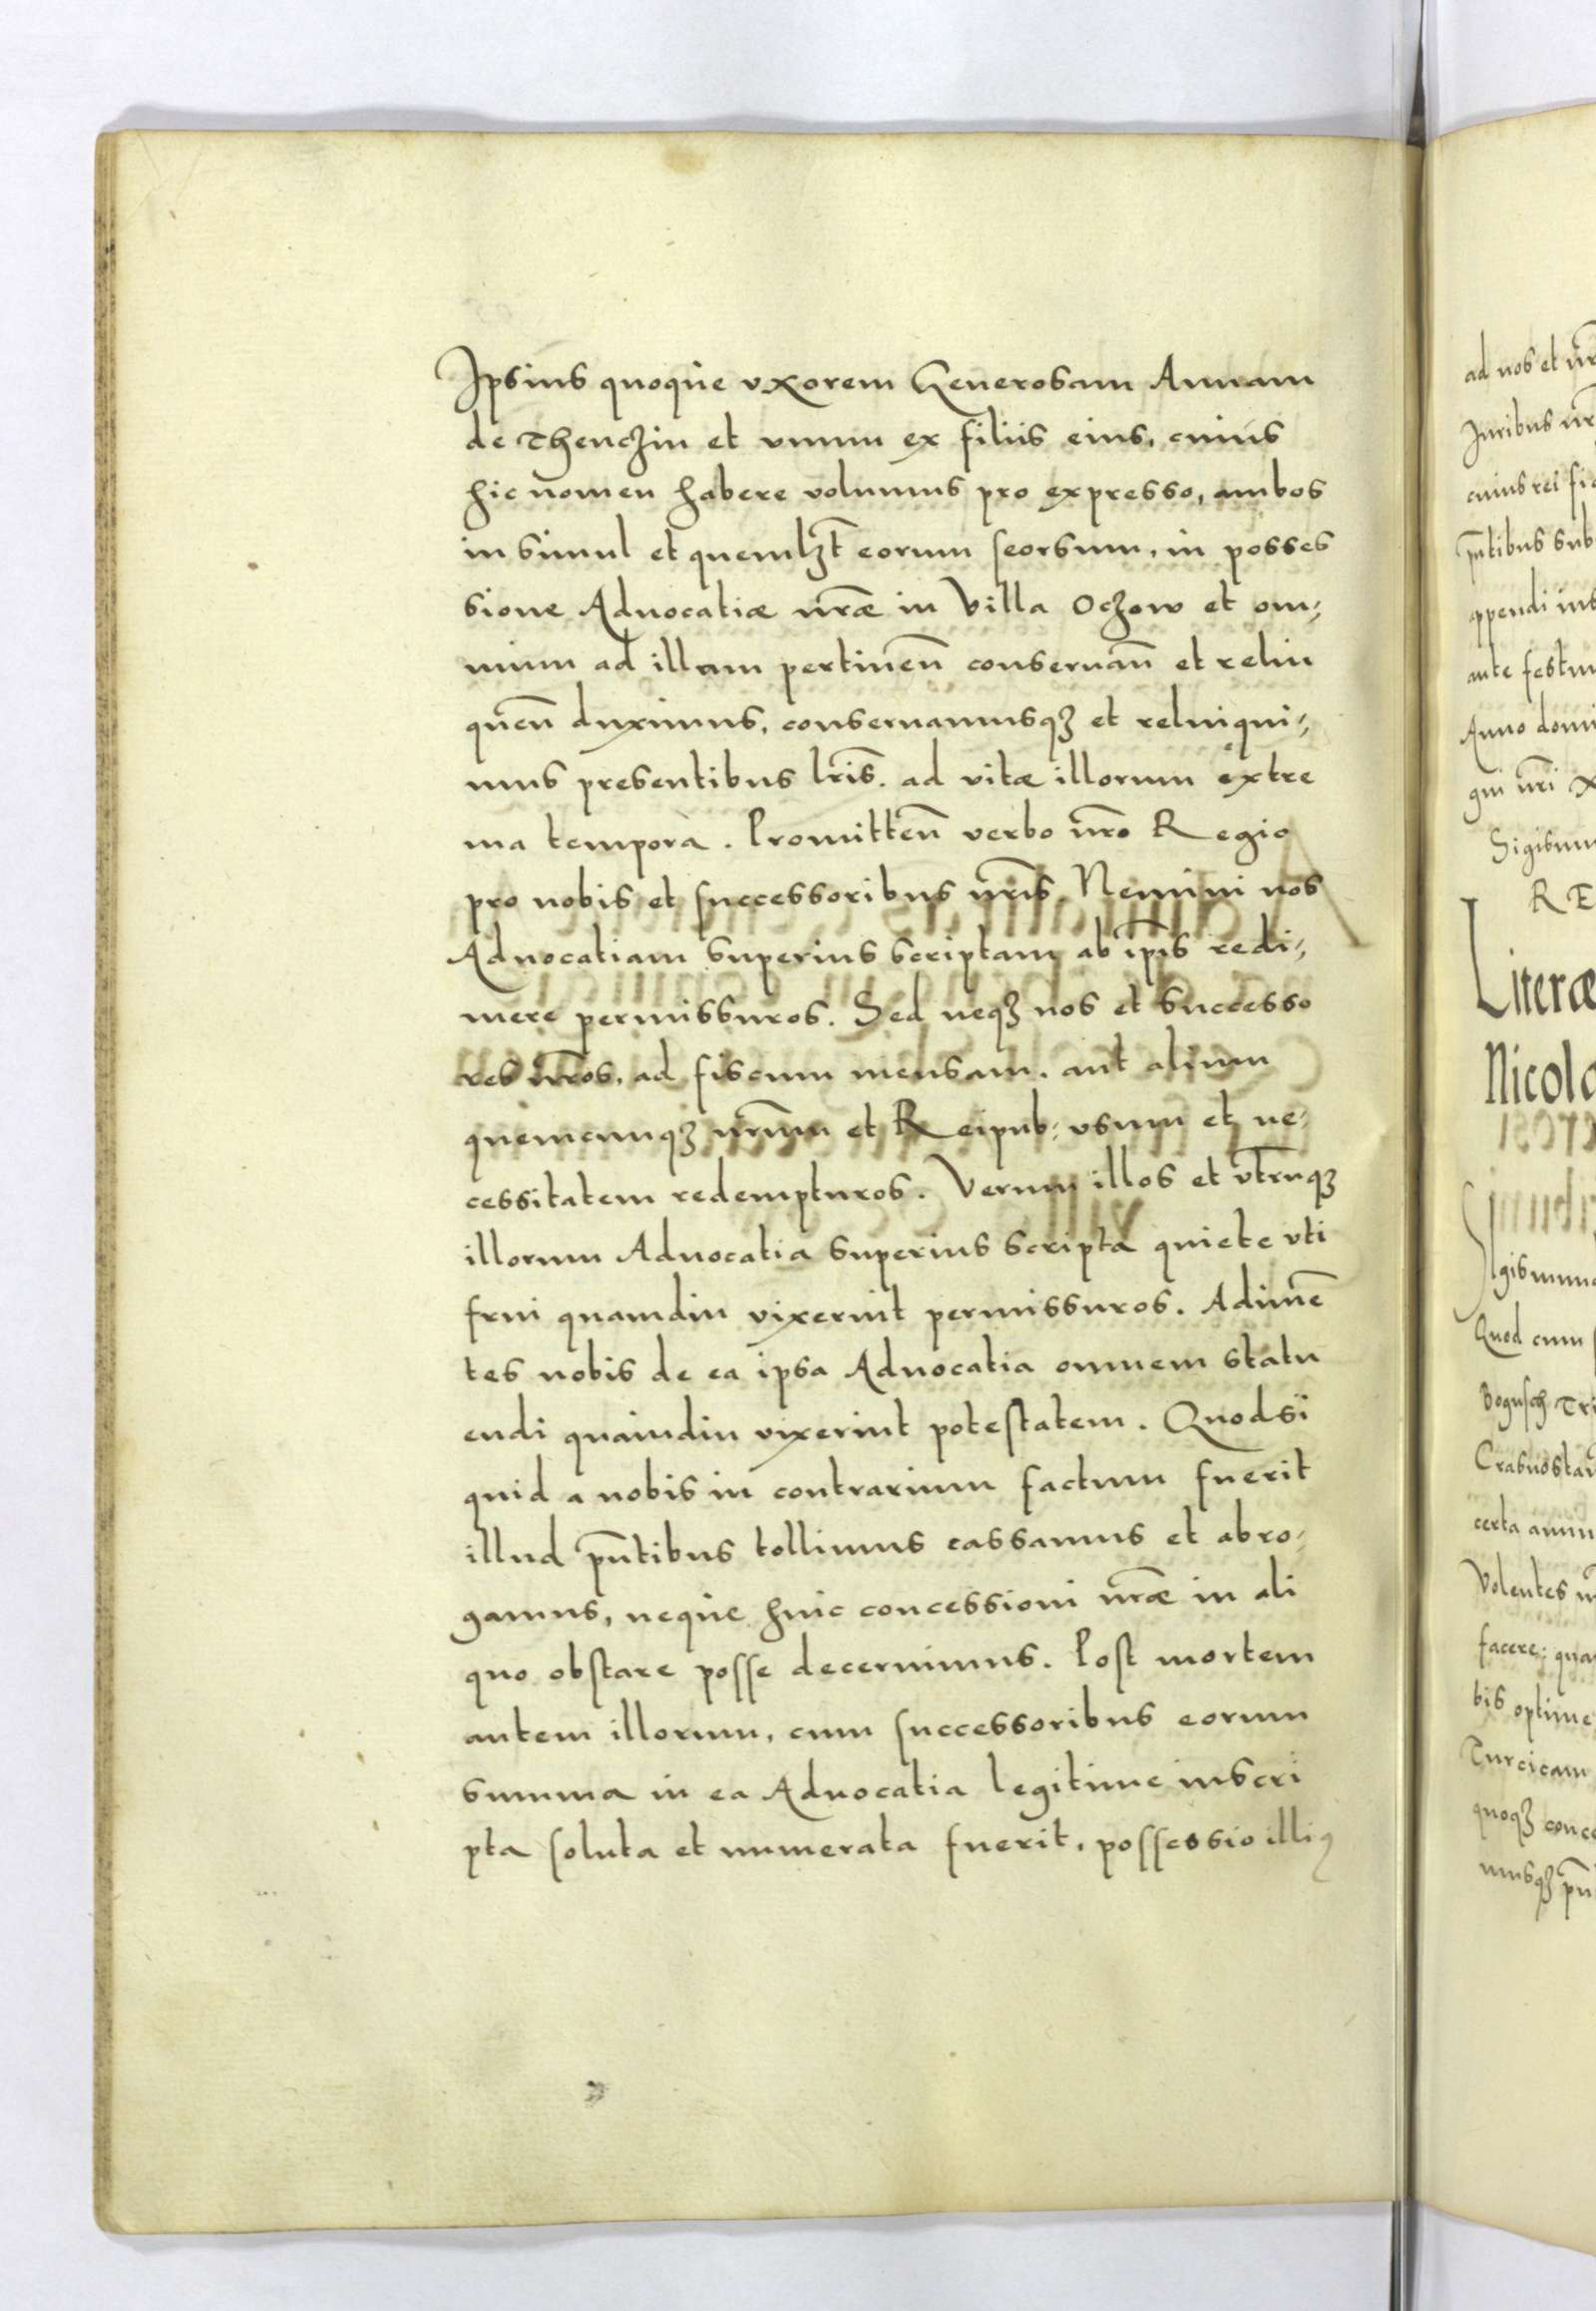 Ipsius quoque vxorem Generosam Annam
de Thenczin et vnum ex filiis eius, cuius
hic nomen habere volumus pro expresso, ambos
in simul et quemlꝫt eorum seorsum, in posses
sione Aduocatiæ nr̄æ in Villa Oczow et om,
nium ad illam pertineñ conseruañ et relin
queñ duximus, conseruamusqꝫ et relinqui,
mus presentibus lr̄is. ad vitæ illorum extre
ma tempora. Promitteñ verbo nr̄o Regio
pro nobis et successoribus nr̄is. Nemini nos
Aduocatiam superius scriptam ab ip̄is redi,
mere permissuros. Sed neqꝫ nos et successo
res nr̄os, ad fiscum mensam. aut alium
quemcunqꝫ nr̄um et Reipub: vsum et ne,
cessitatem redempturos. Verum illos et vtr̄uqꝫ
illorum Aduocatia superius scripta quiete vti
frui quamdiu vixerint permissuros. Adimē
tes nobis de ea ipsa Aduocatia omnem statu
endi quamdiu vixerint potestatem. Quodsi
quid a nobis in contrarium factum fuerit
illud pn̄tibus tollimus cassamus et abro,
gamus, neque huic concessioni nr̄æ in ali
quo obstare posse decernimus. Post mortem
autem illorum, cum successoribus eorum
summa in ea Aduocatia legitime inscri
pta soluta et numerata fuerit, possessio illiꝰ
ad nos et
Iuribus
cuius rei
pn̄tibus sub
appendi
ante festum
Anno domi
gni nr̄i
Sigismun
RE
Literæ
Nicola
Quod cum
Bogusch
certa
Volentes
facere: qua
bis optime
Turcicam
quoqꝫ conc
musqꝫ pn̄